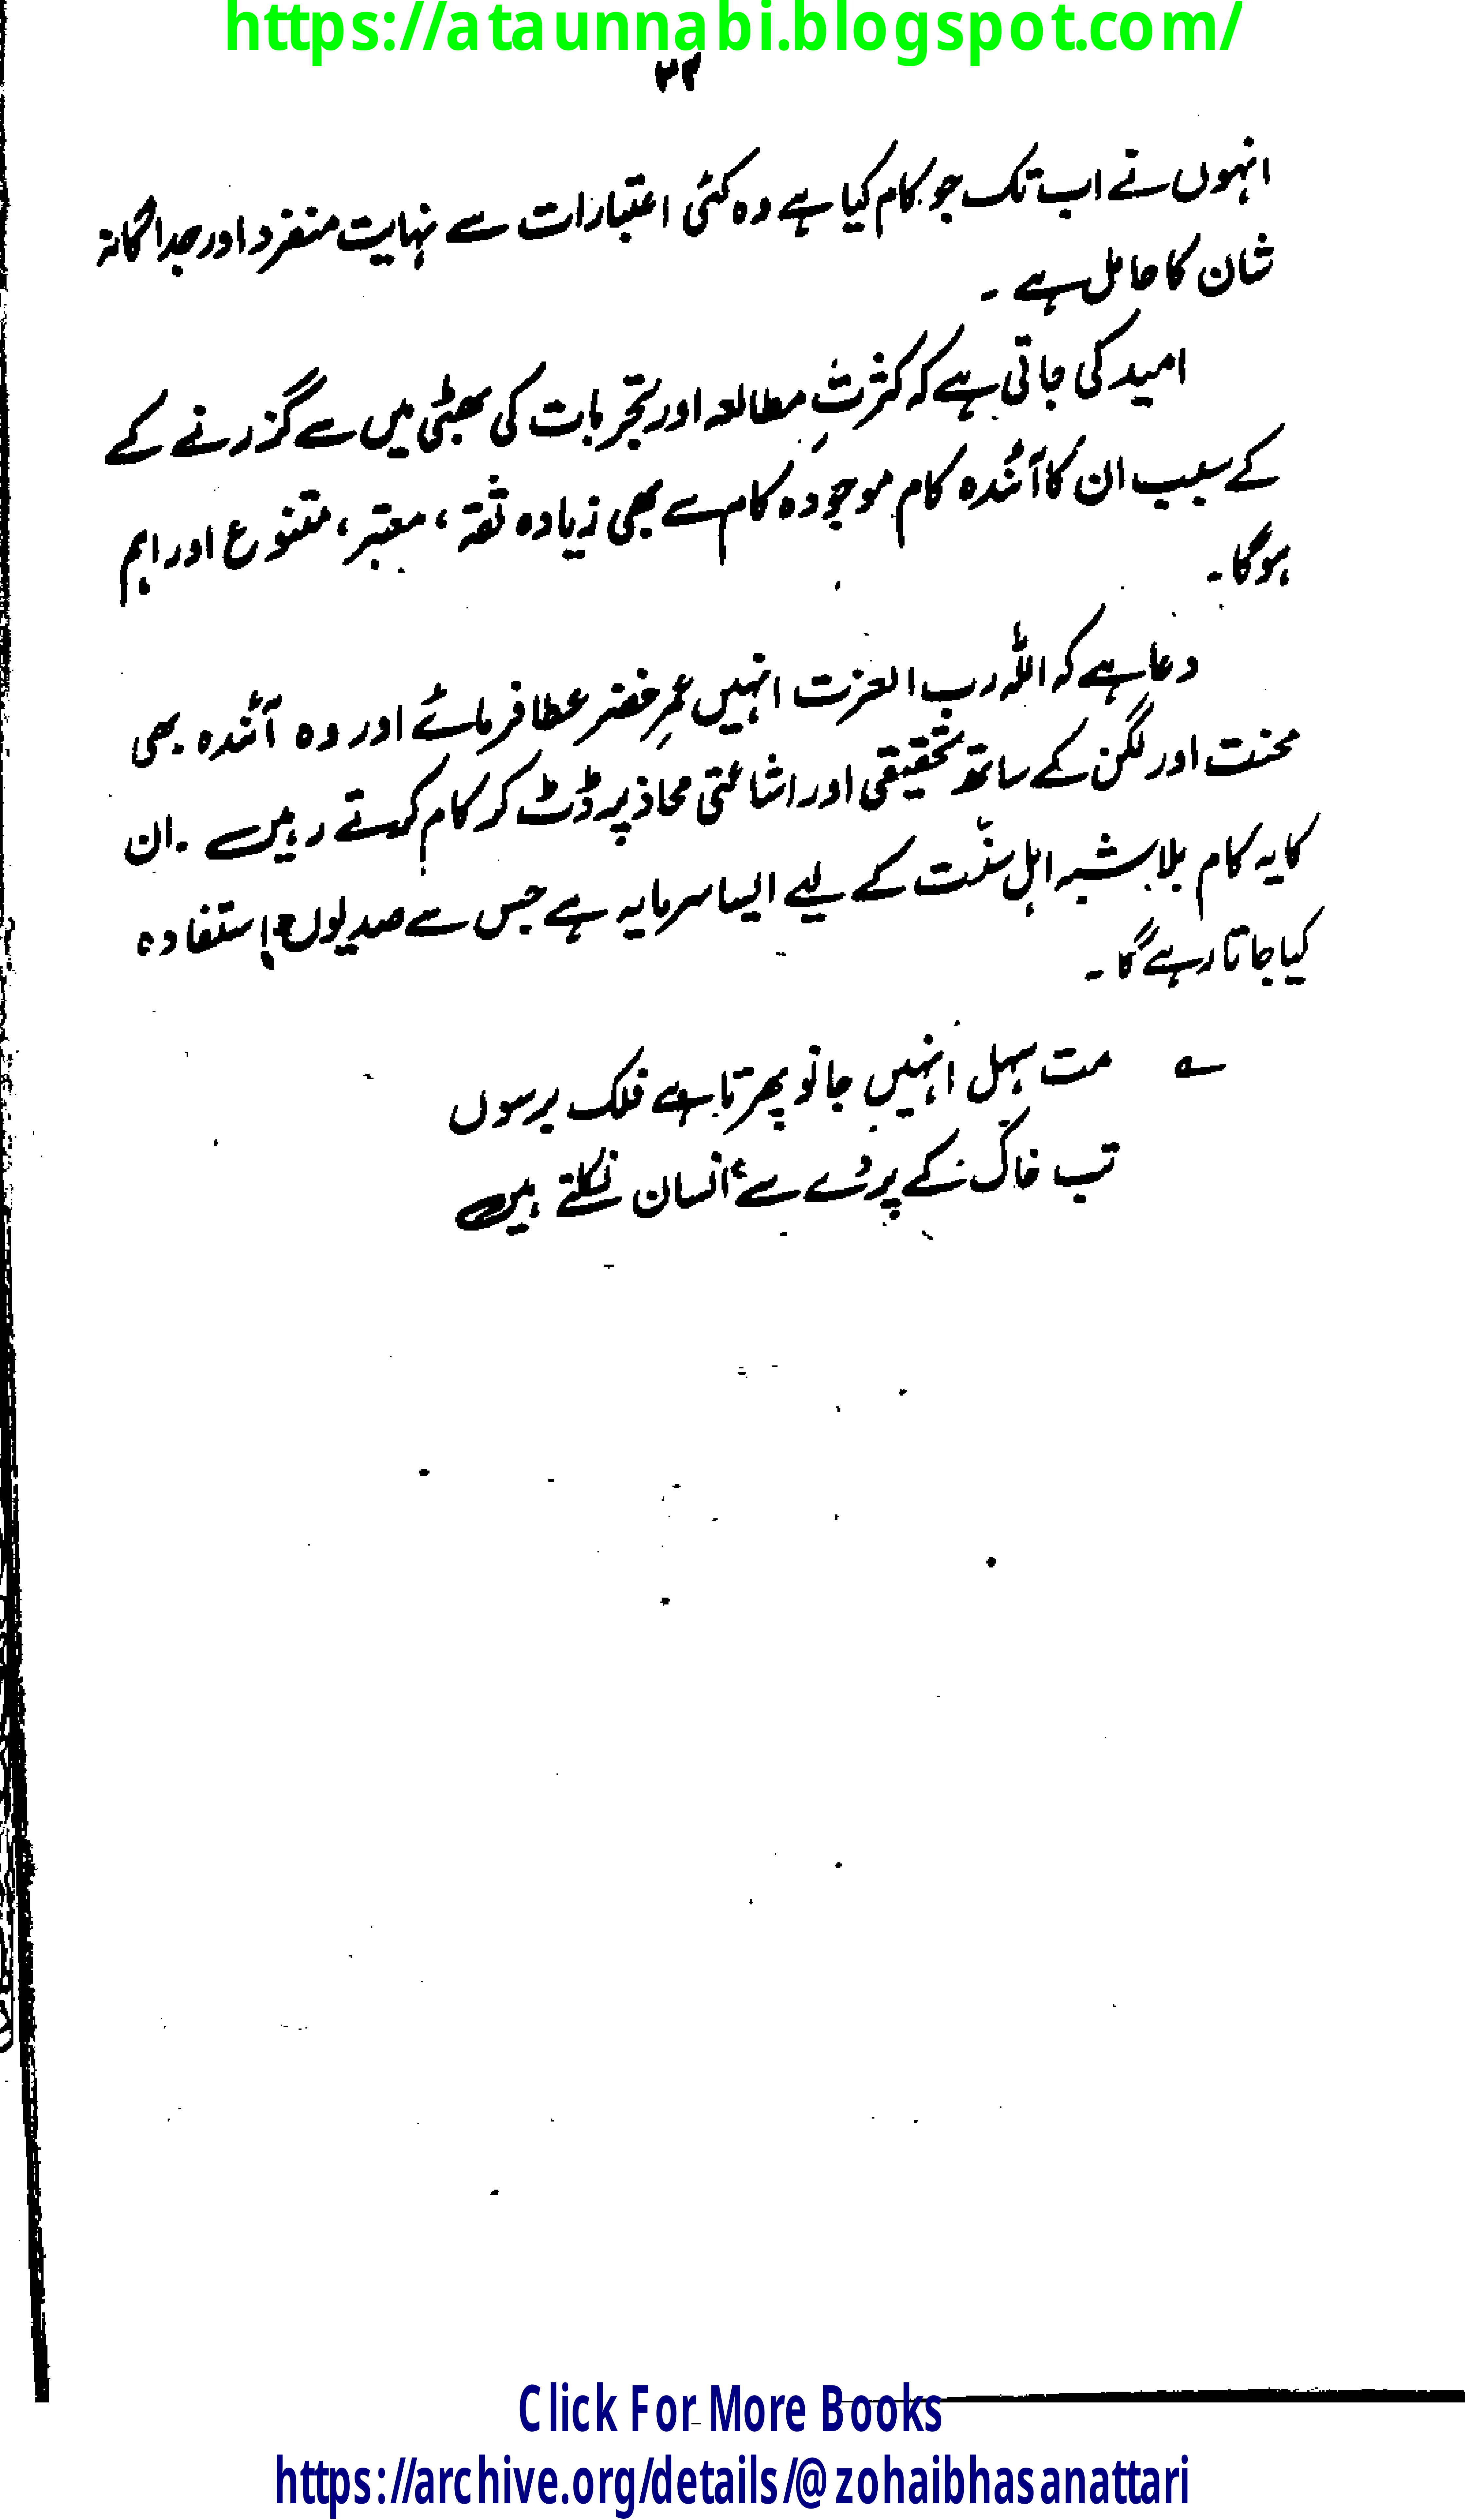 https://ataunnabi.blogspot.com/
انہوں نے اب تک جو کام کیا ہے وہ کئی اعتبارات سے نہایت منفرد اور جداگانہ
شان کا حامل ہے ۔
امید کی جاتی ہے کہ کثرتِ مطالعہ اور تجربات کی بھٹی میں سے گزرنے کے
کے سبب ان کا آئندہ کام موجودہ کام سے بھی زیادہ ثقہ ، معتبر ، متنوع اور اہم
ہوگا ۔
دعا ہے کہ اللہ رب العزت انہیں عمرِ خضر عطا فرمائے اور وہ آئندہ بھی
محنت اور لگن کے ساتھ تحقیقی اور اشاعتی محاذ پر ڈٹ کر کام کرتے رہیں ۔ ان
کا یہ کام بلاشبہ اہل سنّت کے لیے ایسا سرمایہ ہے جس سے صدیوں استفادہ
کیا جاتا رہے گا ۔
؎ مت سہل انہیں جانو پھرتا ہے فلک برسوں
تب خاک کے پردے سے انسان نکلتے ہیں
Click For More Books
https://archive.org/details/@zohaibhasanattari